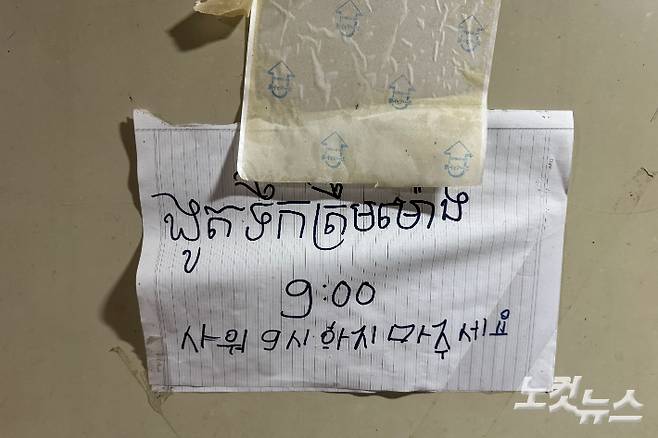 ងូតទឹកត្រឹមម៉ោង
9:00
샤워 9시 하지 마주세요
노컷뉴스